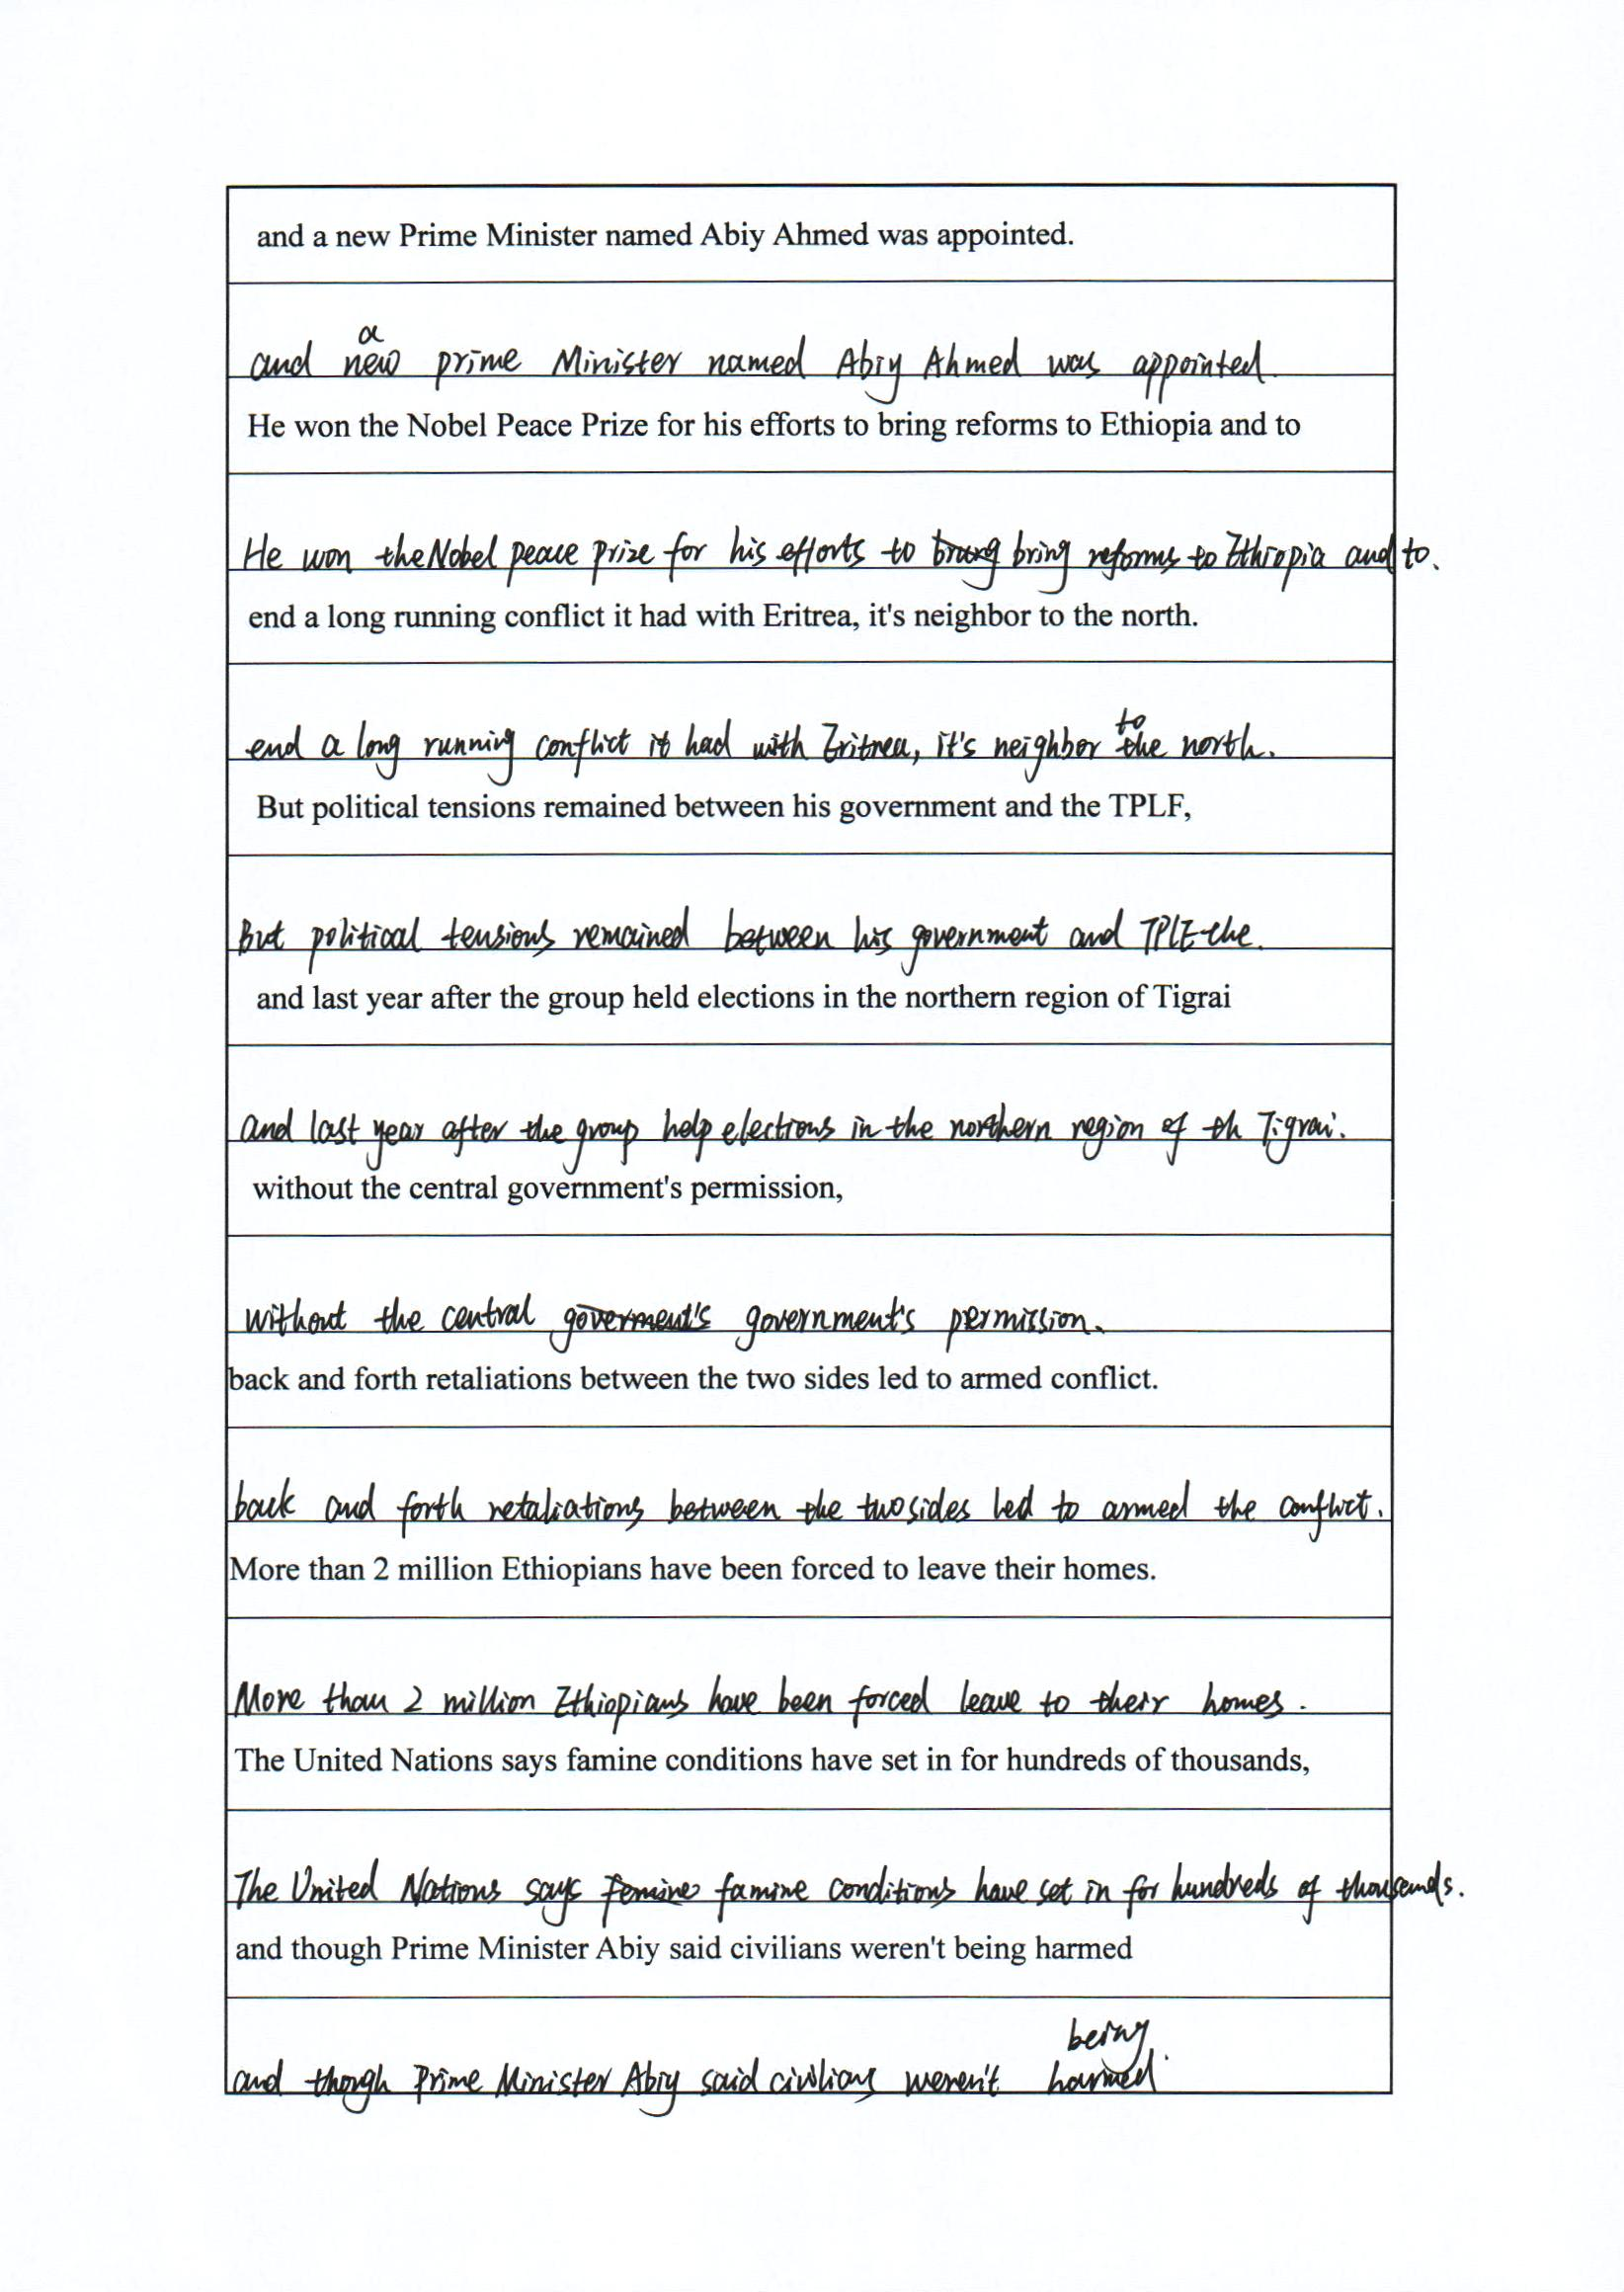 and a new Prime Minister named Abiy Ahmed was appointed.
and a new prime Minister named Abiy Ahmed was appointed.
He won the Nobel Peace Prize for his efforts to bring reforms to Ethiopia and to
He won the Nobel peace prize for his efforts to brung bring reforms to Ethiopia and to.
end a long running conflict it had with Eritrea, it's neighbor to the north.
end a long running conflict it had with Eritrea, it's neighbor to the north.
But political tensions remained between his government and the TPLF,
But political tensions remained between his government and TPLF the.
and last year after the group held elections in the northern region of Tigrai
and last year after the group help elections in the northern region of th Tigrai.
without the central government's permission,
without the central goverment's government's permission.
back and forth retaliations between the two sides led to armed conflict.
back and forth retaliations between the two sides led to armed the conflict.
More than 2 million Ethiopians have been forced to leave their homes.
More than 2 million Ethiopians have been forced leave to their homes.
The United Nations says famine conditions have set in for hundreds of thousands,
The United Nations says femine famine conditions have set in for hundreds of thousands.
and though Prime Minister Abiy said civilians weren't being harmed
and though Prime Minister Abiy said civilians weren't being harmed.